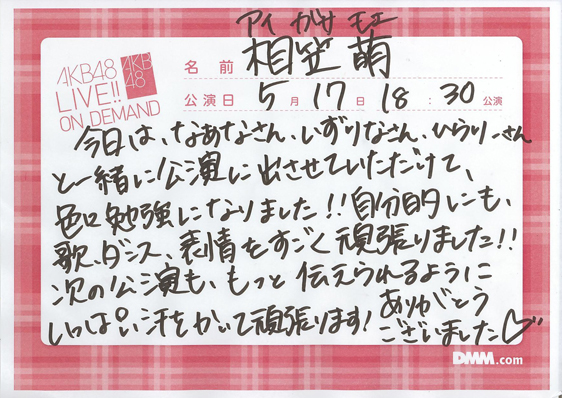 アイ がさ モエ
AKB48
LIVE!!
ON DEMAND
AKB
48
名前 相笠 萌
公演日 5月17日 18:30公演
今日は、なあなさん、いずりなさん、ひらりーさん
と一緒に公演に出させていただけて、
色々勉強になりました!!自分的にも、
歌、ダンス、表情をすごく頑張りました!!
次の公演も、もっと伝えられるように
いっぱい汗をかいて頑張ります!
ありがとう
ございました♡
DMM.com